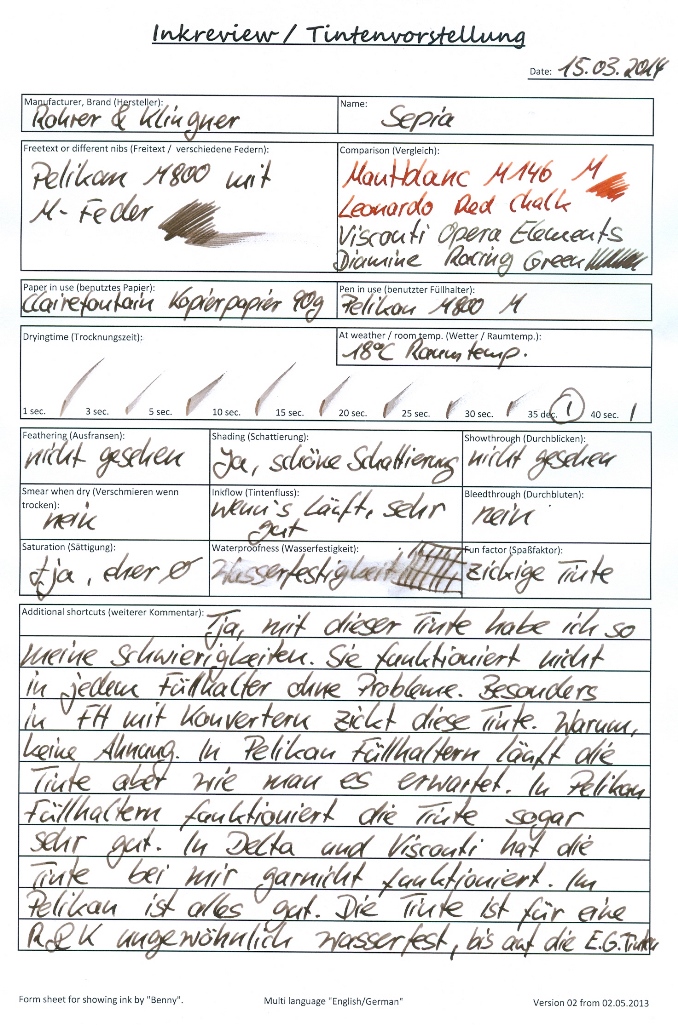 Inkreview / Tintenvorstellung
Date: 15.03.2014
Manufacturer, Brand (Hersteller): Name:
Rohrer & Klingner Sepia
Freetext or different nibs (Freitext / verschiedene Federn): Comparison (Vergleich):
Pelikan M800 mit
M-Feder
Montblanc M146 M
Leonardo Red Chalk
Visconti Opera Elements
Diamine Racing Green
Paper in use (benutztes Papier): Pen in use (benutzter Füllhalter):
Clairefountain Kopierpapier 90g Pelikan M800 M
Dryingtime (Trocknungszeit): At weather / room temp. (Wetter / Raumtemp.):
18°C Raumtemp.
1 sec. 3 sec. 5 sec. 10 sec. 15 sec. 20 sec. 25 sec. 30 sec. 35 dec. 40 sec.
Feathering (Ausfransen): Shading (Schattierung): Showthrough (Durchblicken):
nicht gesehen Ja, schöne Schattierung nicht gesehen
Smear when dry (Verschmieren wenn trocken): Inkflow (Tintenfluss): Bleedthrough (Durchbluten):
nein wenn's läuft, sehr gut nein
Saturation (Sättigung): Waterproofness (Wasserfestigkeit): Fun factor (Spaßfaktor):
tja, eher ø Wasserfestigkeit zickige Tinte
Additional shortcuts (weiterer Kommentar): Tja, mit dieser Tinte habe ich so
meine Schwierigkeiten. Sie funktioniert nicht
in jedem Füllhalter ohne Probleme. Besonders
in FH mit Konvertern zickt diese Tinte. Warum,
keine Ahnung. In Pelikan Füllhaltern läuft die
Tinte aber wie man es erwartet. In Pelikan
Füllhaltern funktioniert die Tinte sogar
sehr gut. In Delta und Visconti hat die
Tinte bei mir garnicht funktioniert. Im
Pelikan ist alles gut. Die Tinte ist für eine
R&K ungewöhnlich wasserfest, bis auf die E.G.Tinten
Form sheet for showing ink by "Benny". Multi language "English/German" Version 02 from 02.05.2013